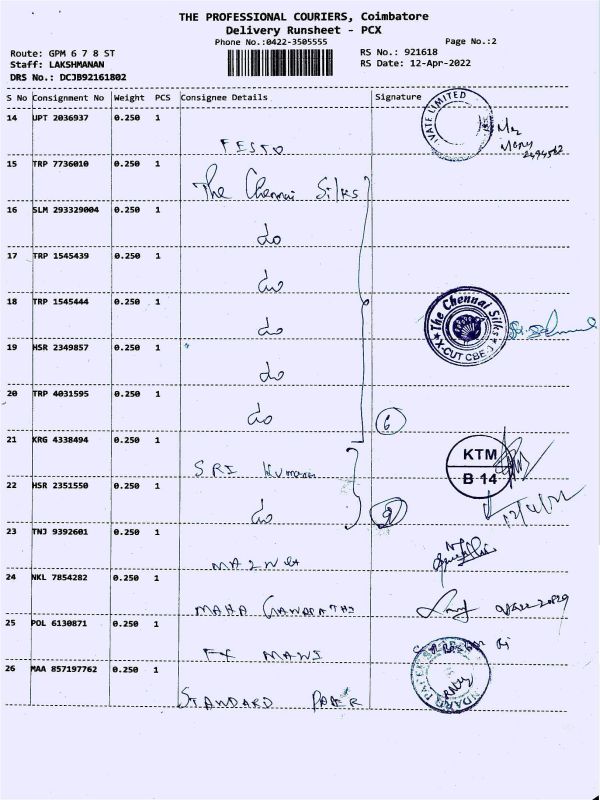 THE PROFESSIONAL COURIERS, Coimbatore
Delivery Runsheet - PCX
Phone No.:0422-3505555
Page No.:2
Route: GPM 6 7 8 ST
RS No.: 921618
Staff: LAKSHMANAN
RS Date: 12-Apr-2022
DRS No.: DCJB92161802
S No Consignment No Weight PCS Consignee Details Signature
14 UPT 2036937 0.250 1
VATE LIMITED
FESTO
15 TRP 7736010 0.250 1
The Chennai Silks
16 SLM 293329004 0.250 1
do
17 TRP 1545439 0.250 1
do
18 TRP 1545444 0.250 1
do
The Chennai Silks
X-CUT CBE-1
19 HSR 2349857 0.250 1
do
20 TRP 4031595 0.250 1
do 6
21 KRG 4338494 0.250 1
SRI Kumaran
KTM
B 14
22 HSR 2351550 0.250 1
do 2
12/4/22
23 TNJ 9392601 0.250 1
24 NKL 7854282 0.250 1
MAHA GANAPATHI
25 POL 6130871 0.250 1
26 MAA 857197762 0.250 1
STANDARD PAPER